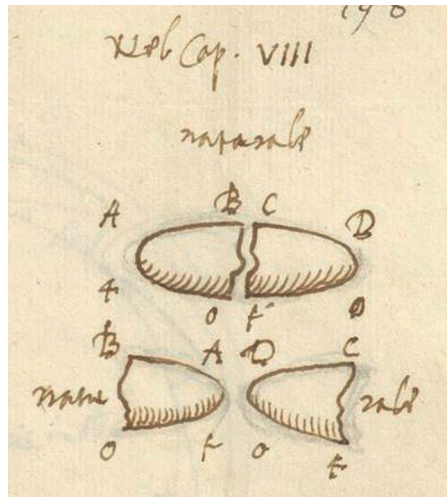 Nel Cap. VIII
naturale
A B C D
O t O
B A D C
natu rale
O t O t